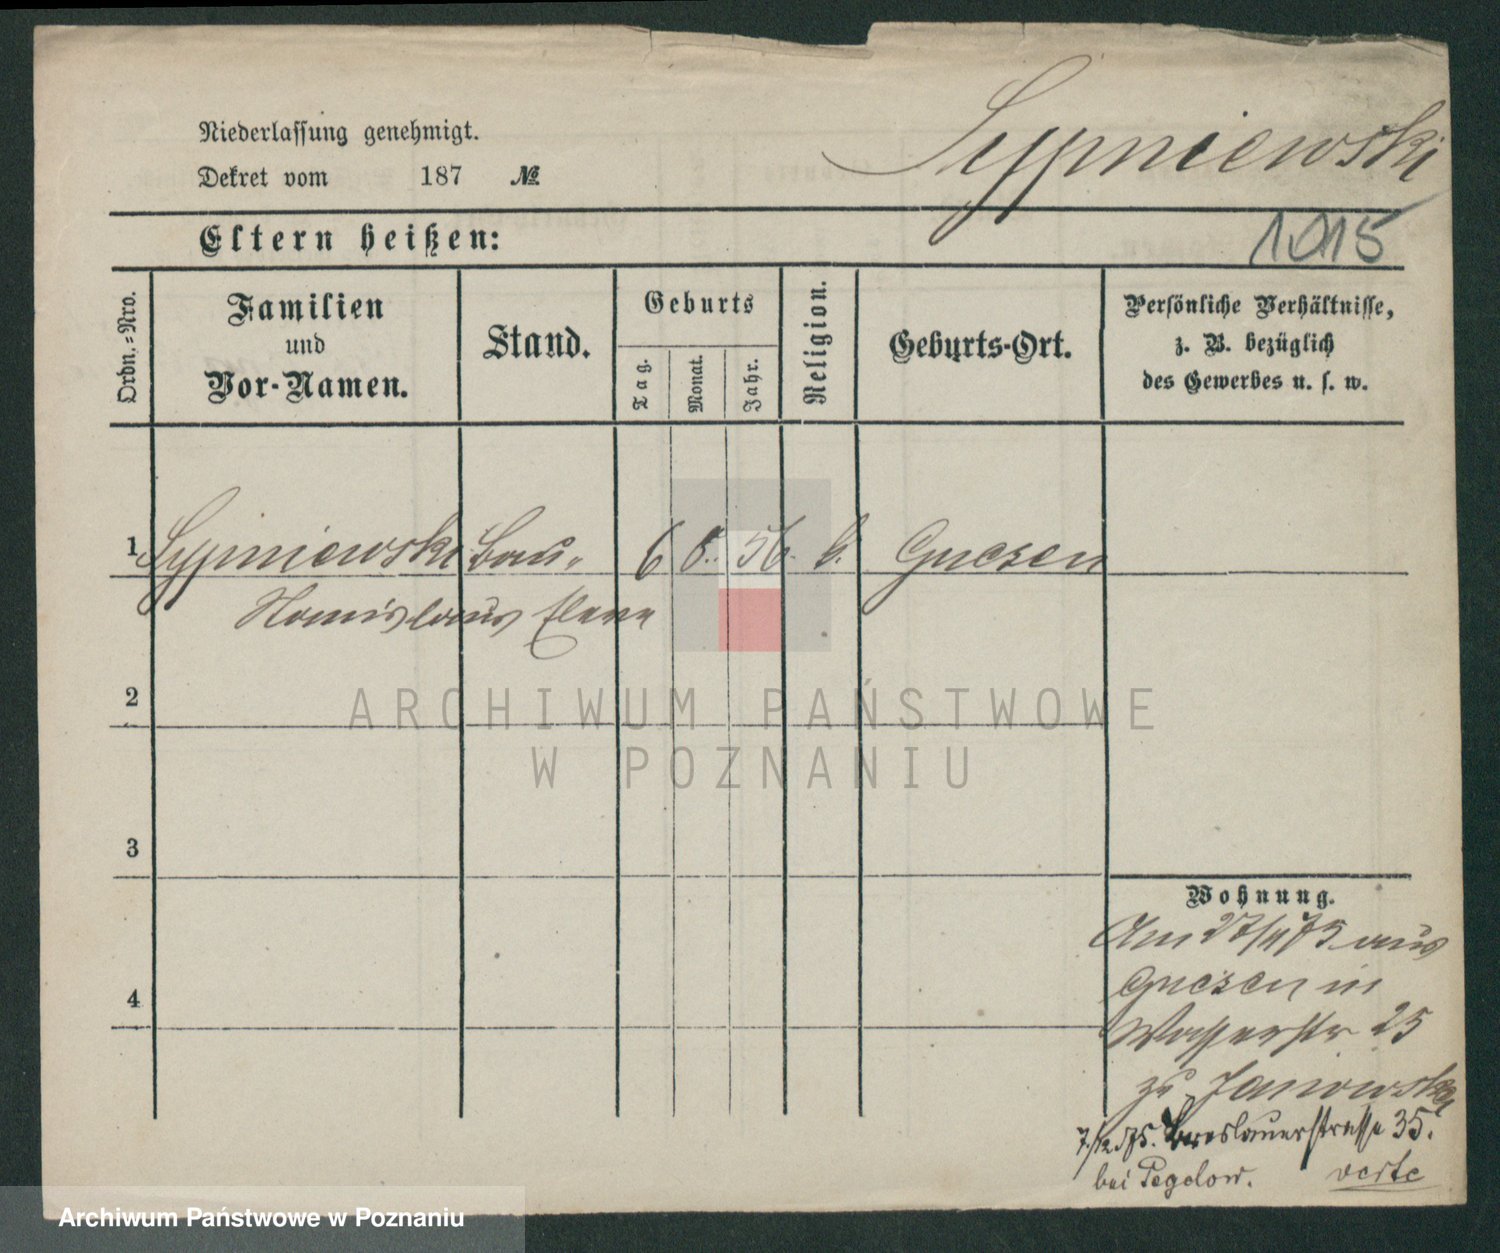 Niederlassung genehmigt.
Dekret vom 187 №
Sypniewski
1015
Eltern heißen:
Ordn.-Nro.
Familien
und
Vor-Namen.
Stand.
Geburts
Tag.
Monat.
Jahr.
Religion.
Geburts-Ort.
Persönliche Verhältnisse,
z. B. bezüglich
des Gewerbes u. s. w.
1 Sypniewski Bau- 6 8. 56. k. Gnesen
Stanislaus Eleve
2
ARCHIWUM PAŃSTWOWE
W POZNANIU
3
4
Wohnung.
Am 27/11 75 aus
Gnesen in
Wasserstr 25
zu Janowski
7./12 75. Breslauerstrasse 35.
bei Pegelow. verte
Archiwum Państwowe w Poznaniu